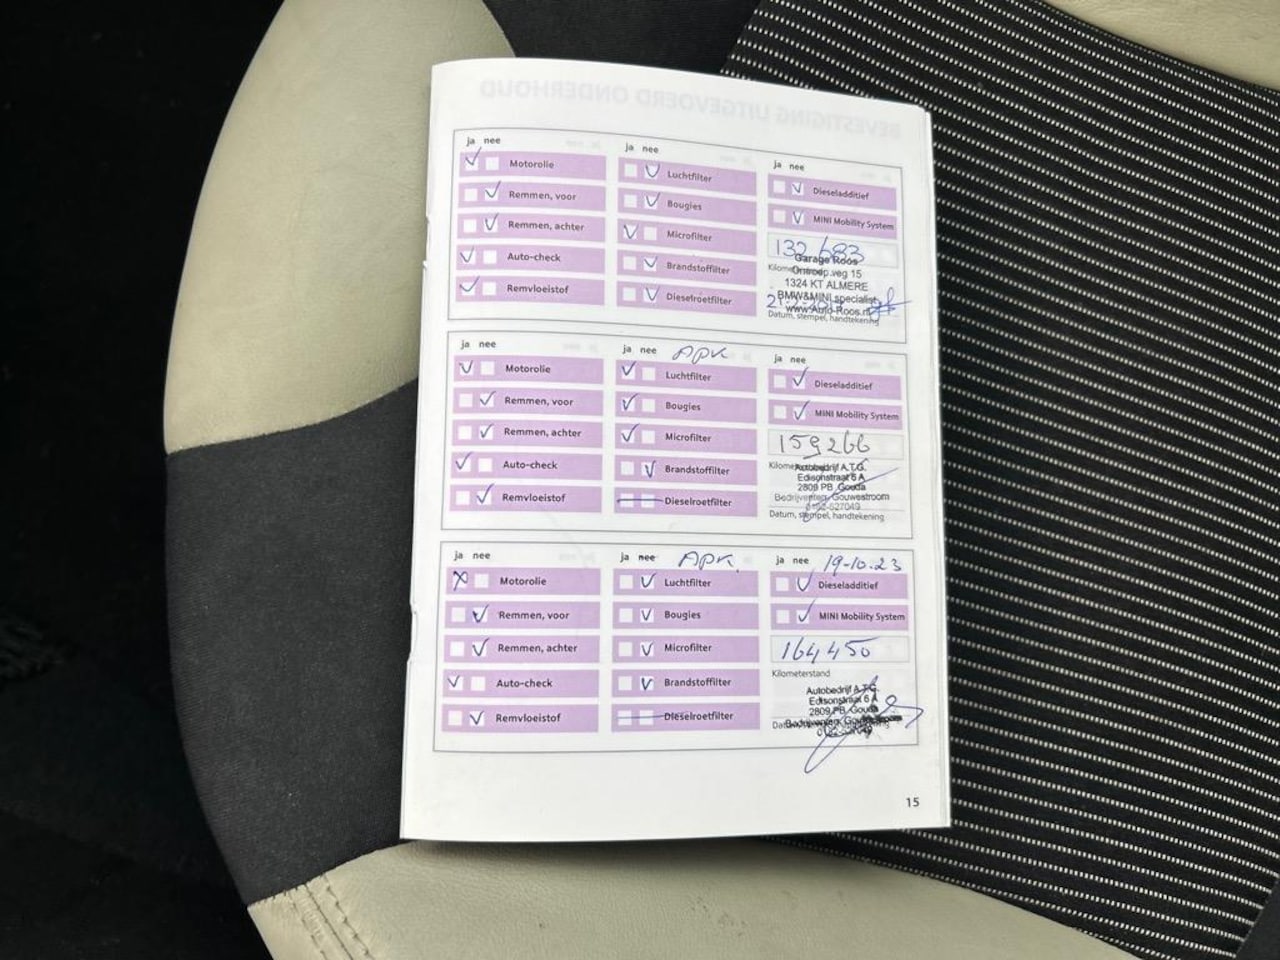 BEVESTIGING UITGEVOERD ONDERHOUD
ja nee
Motorolie
Remmen, voor
Remmen, achter
Auto-check
Remvloeistof
ja nee
Luchtfilter
Bougies
Microfilter
Brandstoffilter
Dieselroetfilter
ja nee
Dieseladditief
MINI Mobility System
132 683
Garage Roos
veg 15
1324 KT ALMERE
BMW&MINI specialist
www.Auto-Roos.nl
Datum, stempel, handtekening
ja nee
Motorolie
Remmen, voor
Remmen, achter
Auto-check
Remvloeistof
ja nee APK
Luchtfilter
Bougies
Microfilter
Brandstoffilter
Dieselroetfilter
ja nee
Dieseladditief
MINI Mobility System
159266
Autobedrijf A.T.G.
Edisonstraat 6 A
2809 PB Gouda
Bedrijventer. Gouwestroom
0182-527049
Datum, stempel, handtekening
ja nee
Motorolie
Remmen, voor
Remmen, achter
Auto-check
Remvloeistof
ja nee APK.
Luchtfilter
Bougies
Microfilter
Brandstoffilter
Dieselroetfilter
ja nee 19-10-23
Dieseladditief
MINI Mobility System
164450
Kilometerstand
Autobedrijf A.T.G.
Edisonstraat 6 A
2809 PB Gouda
15